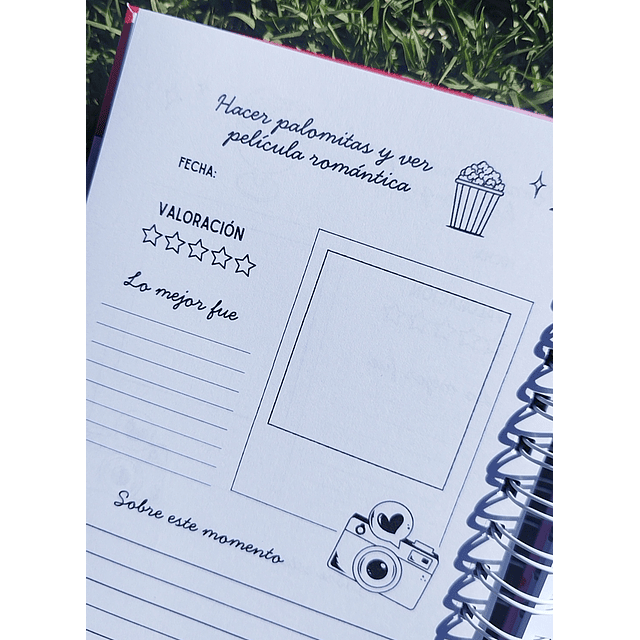 Hacer palomitas y ver
película romántica
FECHA:
VALORACIÓN
Lo mejor fue
Sobre este momento